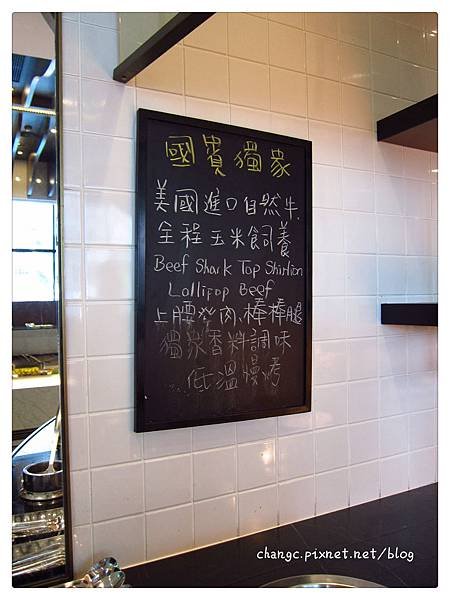 國賓獨家
美國進口自然牛.
全程玉米飼養
Beef Shark Top Shirlion
Lollipop Beef
上腰肉、棒棒腿
獨家香料調味
低溫慢烤
changc.pixnet.net/blog